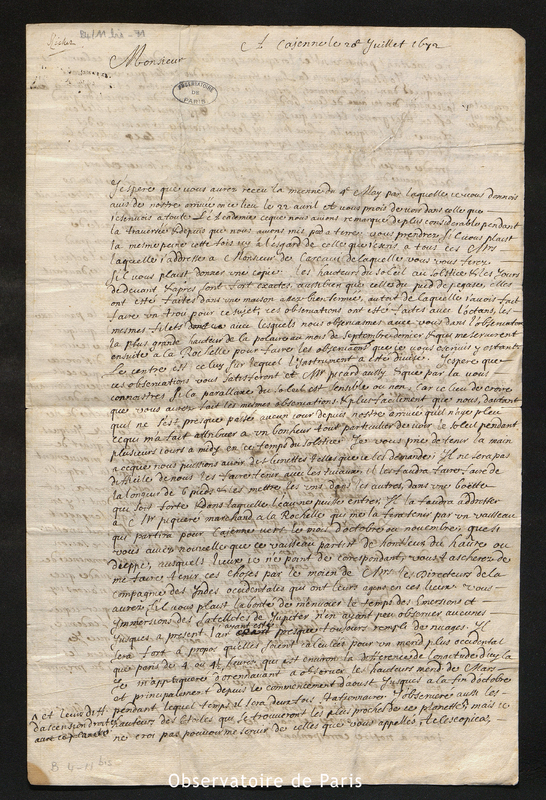 Richer
B4/11 bis - 31
A Cajenne le 20e Juillet 1672
Monsieur
OBSERVATOIRE DE PARIS
J'espere que vous aurez receu la mienne du 4e May par laquelle je vous donnois
avis de nostre arrivée en ce lieu le 22 avril et vous priois de voir dans celle que
j'escrivois a toute L'Academie ce que nous avions remarqué de plus considerable pendant
la traversée & depuis que nous avions mis pied a terre. vous prendrez s'il vous plaist
la mesme peine cette fois icy a l'esgard de celle que j'escris a tous ces Mrs
laquelle j'addresse a Monsieur de Carcavi de laquelle vous vous ferez
s'il vous plaist donner une copie. les hauteurs du soleil au solstice & les jours
de devant & apres sont fort exactes, aussi bien que celles du pied de pegase, elles
ont esté faites dans une maison assez bien fermée, au toit de laquelle j'avois fait
faire un trou pour ce sujet, ces observations ont esté faites avec l'octans, les
mesmes filets avec lesquels nous observasmes avec vous dans l'observatoire
la plus grande hauteur de la polaire au mois de septembre dernier, & qui me servirent
ensuite a la Rochelle pour faire les observations que je vous escrivis y estant.
Le centre est celuy sur lequel l'instrument a esté divisé. J'espere que
ces observations vous satisferont et Mr picard aussy & que par la vous
connoistrez si la parallaxe du soleil est sensible ou non, car ie lieu de croire
que vous aurez fait les mesmes observations & plus facilement que nous, d'autant
qu'il ne s'est presque passé aucun jour depuis nostre arrivée qu'il n'aye pleu
ce qui m'a fait attribuer a un bonheur tout particulier de voir le soleil pendant
plusieurs jours a midy en ce temps du solstice. Je vous prie de tenir la main
a ce que nous puissions avoir des lunettes telles que ie les demande. Il ne sera pas
difficile de nous les faire tenir avec les tuiaux, il les faudra faire faire de
la longueur de 6 pieds & les mettre les uns dans les autres, dans une boëtte
qui soit forte & dans laquelle l'eau ne puisse entrer. Il la faudra addresser
a Mr piguere marchand a la Rochelle qui me la fera tenir par un vaisseau
qui partira pour Cajenne vers le mois d'octobre ou novembre, que si
vous aviez nouvelle que ce vaisseau partist de honfleur du havre ou
dieppe, ausquels lieux ie n'ay point de corespondant, vous tascherez de
me faire tenir ces choses par le moien de Mrs les Directeurs de la
compagnie des Indes occidentales qui ont leurs agens en ces lieux. vous
aurez, s'il vous plaist la bonté de m'envoier le temps des Emersions et
Immersions des satellites de Jupiter n'en ayant peu observer aucunes
jusques a present l'air ayant esté presque toujours rempli de nuages. Il
sera fort a propos qu'elles soient calculées pour un merid. plus occidental
que paris de 4 ou 4½ heures, qui est environ la difference de longitude d'icy la
Je m'appliqueray d'orenavant a observer les hauteurs merid. de Mars
et principalement depuis le commencement d'aoust jusques a la fin d'octobre
pendant lequel temps il sera devant son stationnaire. J'observeray aussi les
hauteurs des Estoiles qui se trouveront les plus proches de ces planettes, mais ie
ne croi pas pouvoir me servir de celles que vous appellés telescopiques,
^ et leurs diff.
d'ascension droite
avec ces planetes
B 4-11 bis
Observatoire de Paris